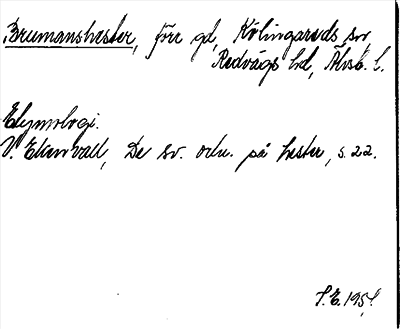 Brumanshester, förr gd, Kölingareds sn
Redvägs hd, Älvsb. l.
Etymologi.
V. Ekenvall, De sv. ortn. på hester, s. 22.
S.E. 195